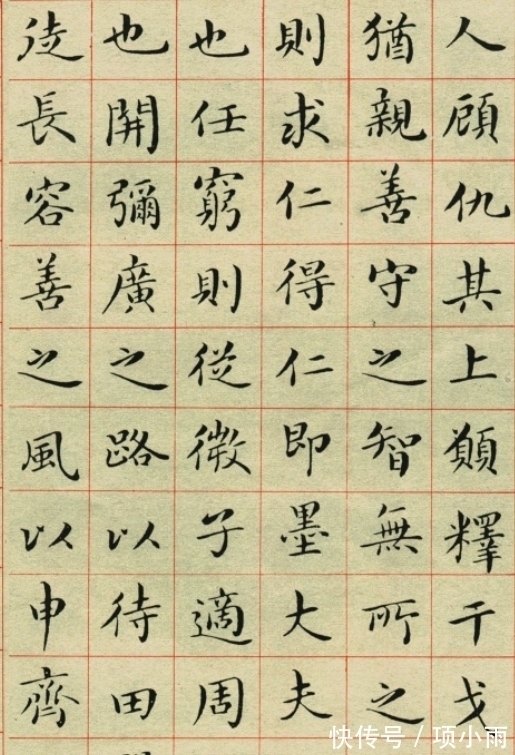 人顧仇其上願釋干戈
猶親善守之智無所之
則求仁得仁即墨大夫
也任窮則從微子適周
也開彌廣之路以待田
徒長容善之風以申齊
快传号 / 项小雨